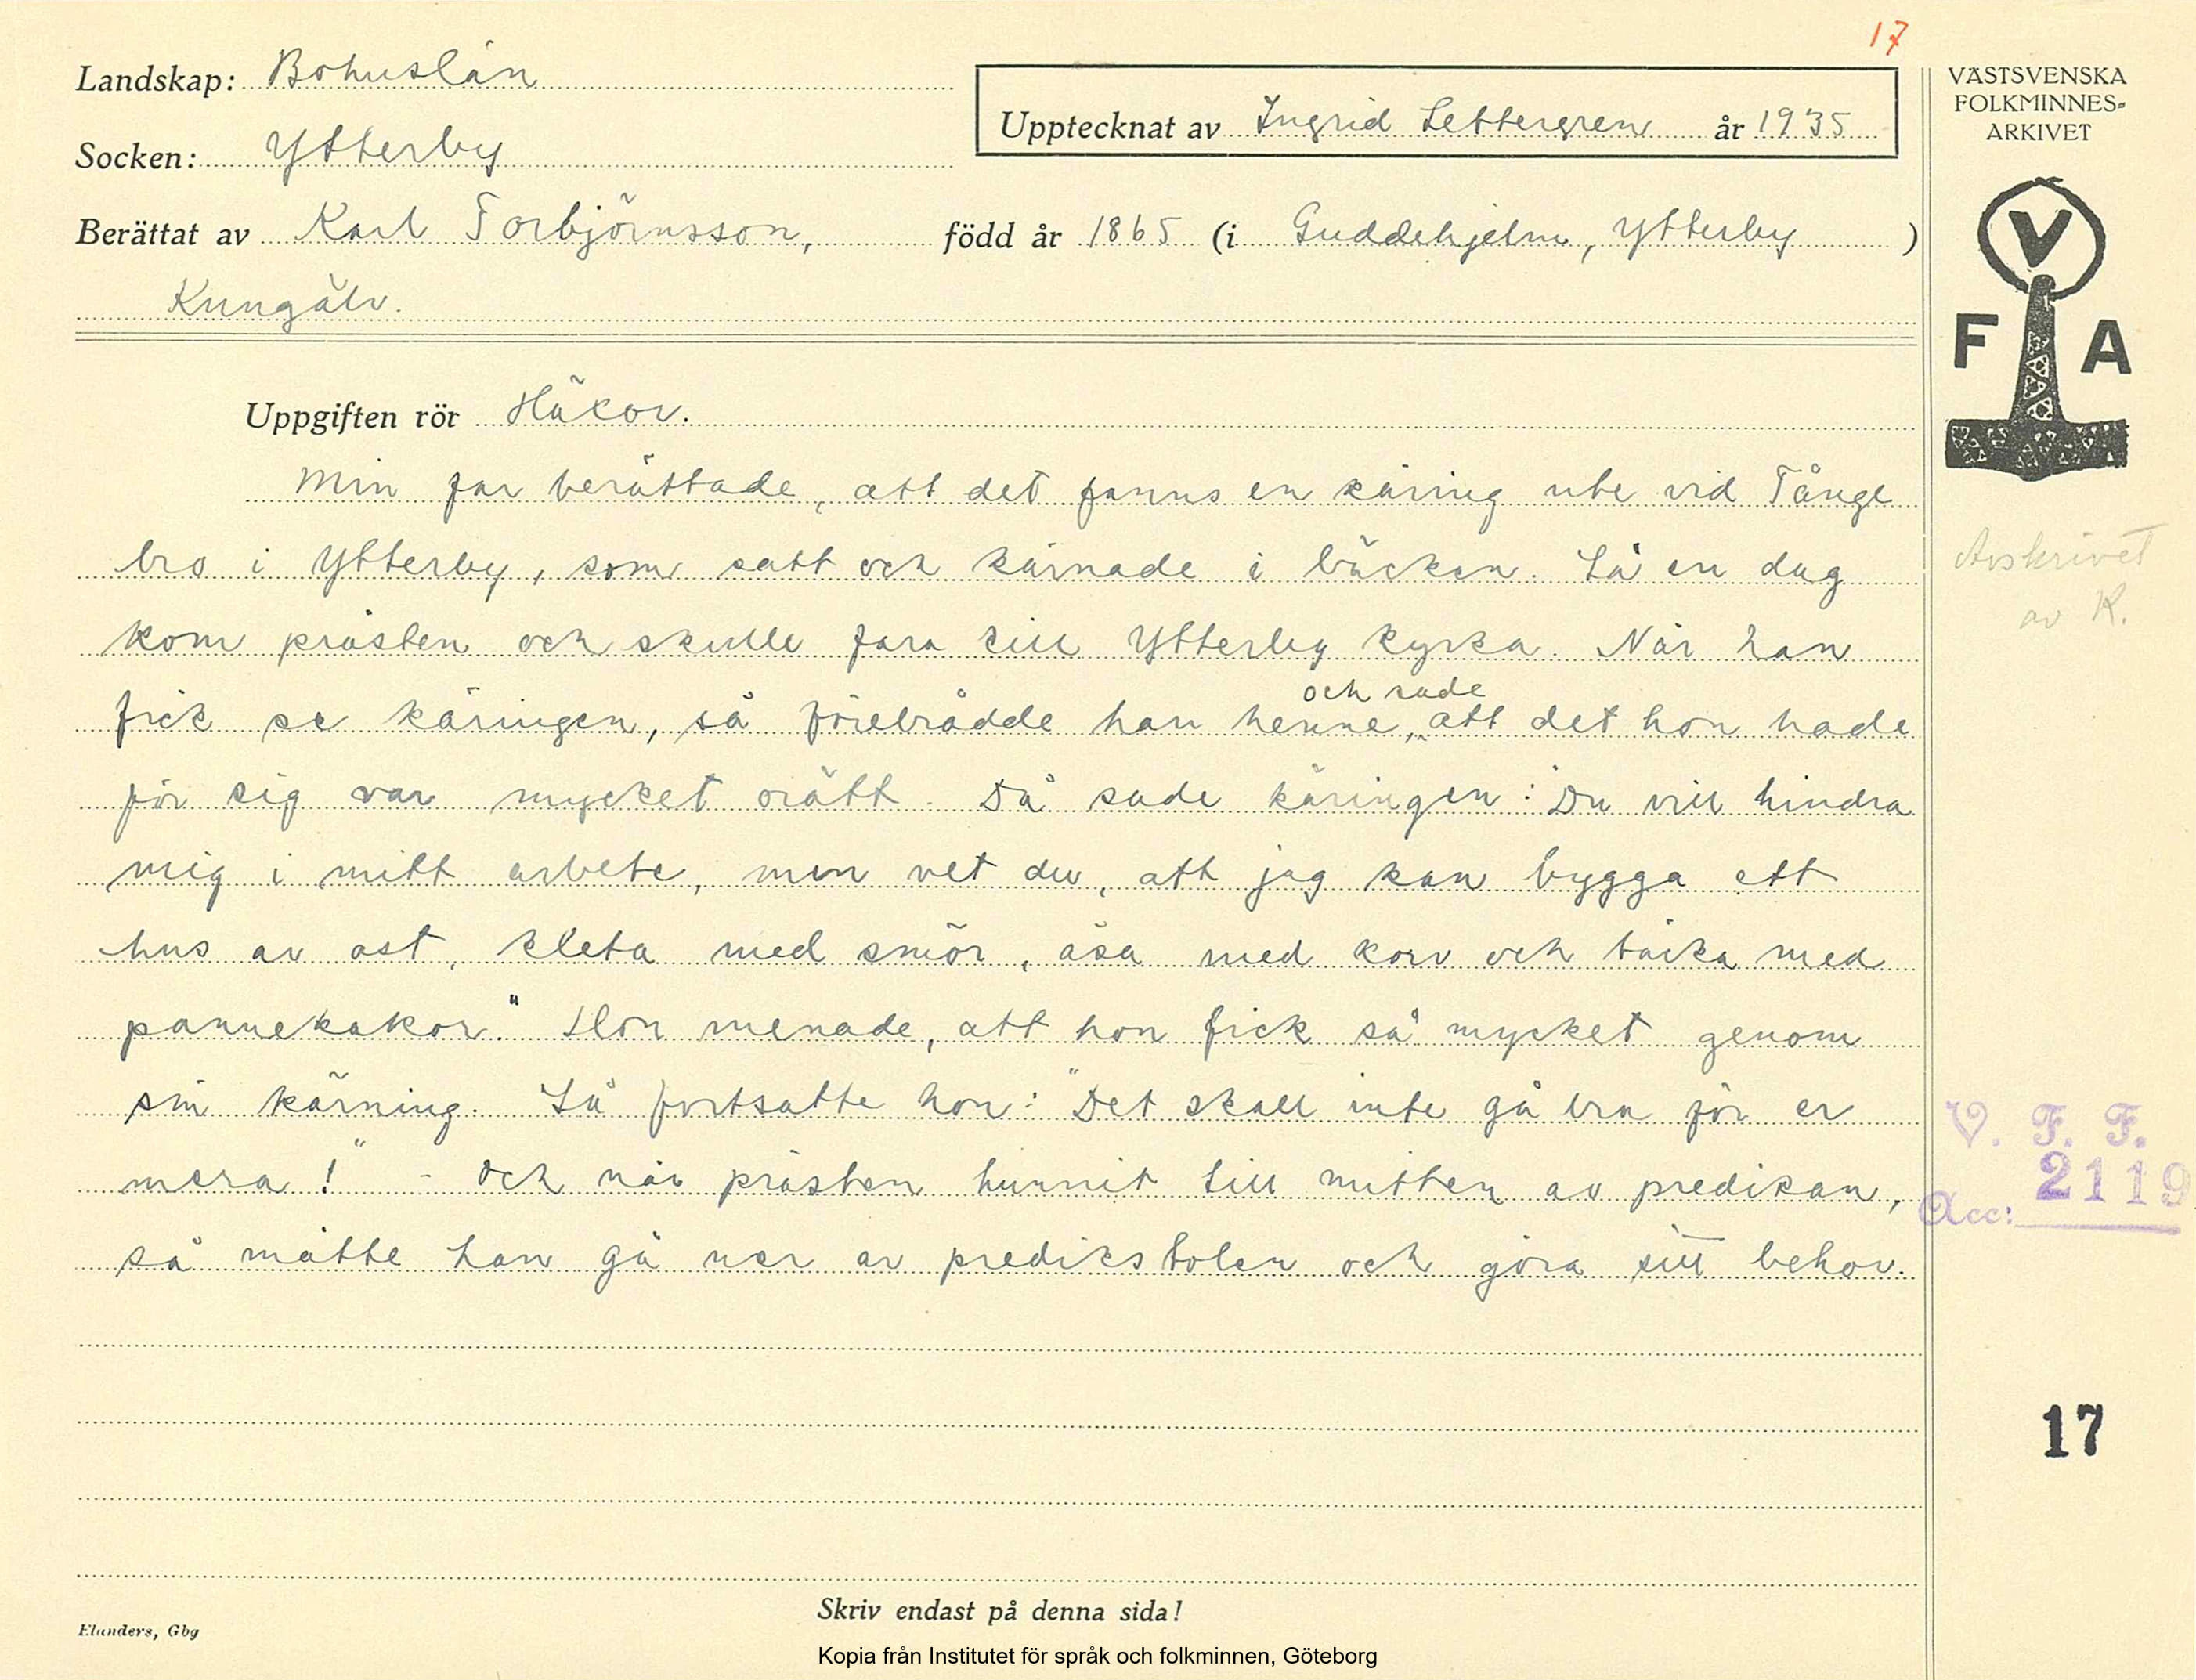 17
Landskap: Bohuslän
Socken: Ytterby
Upptecknat av Ingrid Settergren år 1935
Berättat av Karl Torbjörnsson, född år 1865 (i Guddehjelm, Ytterby )
Kungälv.
Uppgiften rör Häxor.
Min far berättade, att det fanns en käring ute vid Tånge
bro i Ytterby, som satt och kärnade i bäcken. Så en dag
kom prästen och skulle fara till Ytterby kyrka. När han
och sade
fick se käringen, så förebrådde han henne, att det hon hade
för sig var mycket orätt. Då sade käringen: Du vill hindra
mig i mitt arbete, men vet du, att jag kan bygga ett
hus av ost, kleta med smör, åsa med korv och täcka med
pannekakor." Hon menade, att hon fick så mycket genom
sin kärning. Så fortsatte hon: "Det skall inte gå bra för er
mera!" - Och när prästen hunnit till mitten av predikan,
så måtte han gå ner av predikstolen och göra sitt behov.
Skriv endast på denna sida!
Elanders, Gbg
Kopia från Institutet för språk och folkminnen, Göteborg
VÄSTSVENSKA
FOLKMINNES-
ARKIVET
V
F A
Avskrivet
av K.
V. F. F.
2119
Acc:
17